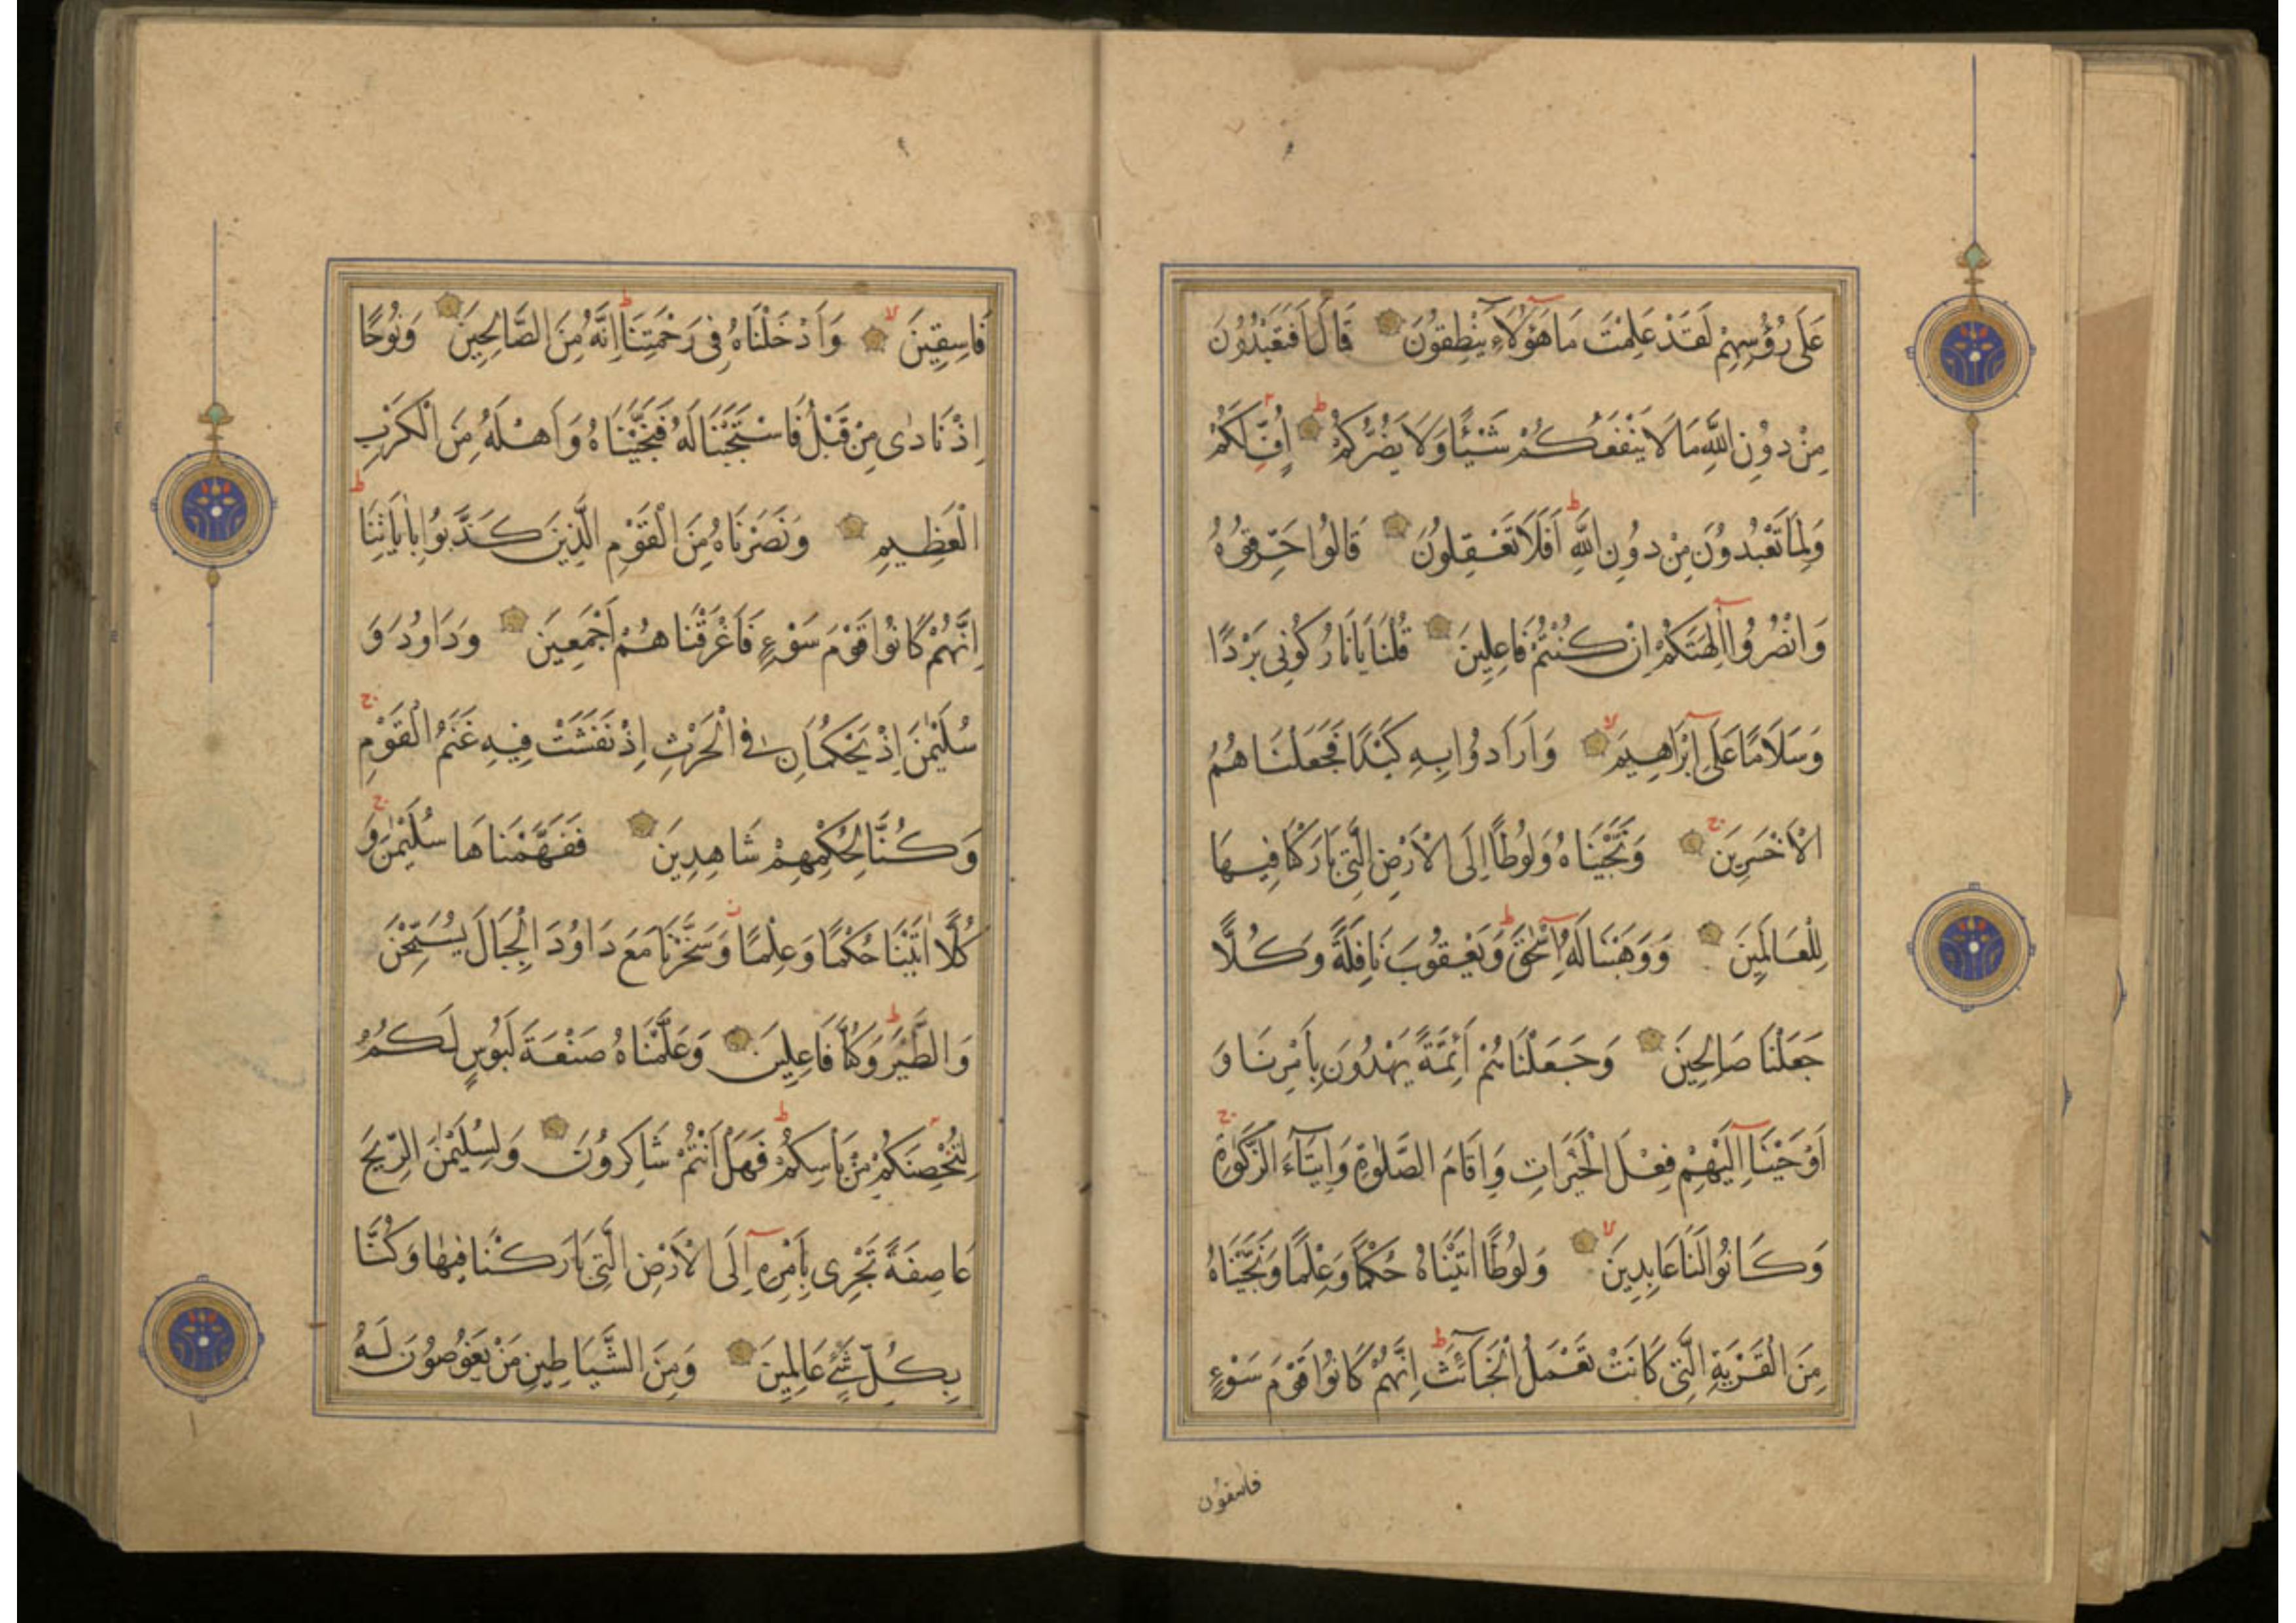 عَلَى رُؤُسِهِمْ لَقَدْ عَلِمْتَ مَا هَؤُلَاءِ يَنْطِقُونَ قَالَ اَفَتَعْبُدُونَ
مِنْ دُونِ اللَّهِ مَا لَا يَنْفَعُكُمْ شَيْئًا وَلَا يَضُرُّكُمْ اُفٍّ لَكُمْ
وَلِمَا تَعْبُدُونَ مِنْ دُونِ اللَّهِ اَفَلَا تَعْقِلُونَ قَالُوا حَرِّقُوهُ
وَانْصُرُوا اٰلِهَتَكُمْ اِنْ كُنْتُمْ فَاعِلِينَ قُلْنَا يَا نَارُ كُونِى بَرْدًا
وَسَلَامًا عَلَى اِبْرَاهِيمَ وَاَرَادُوا بِهِ كَيْدًا فَجَعَلْنَاهُمُ
الْاَخْسَرِينَ وَنَجَّيْنَاهُ وَلُوطًا اِلَى الْاَرْضِ الَّتِى بَارَكْنَا فِيهَا
لِلْعَالَمِينَ وَوَهَبْنَا لَهُ اِسْحٰقَ وَيَعْقُوبَ نَافِلَةً وَكُلًّا
جَعَلْنَا صَالِحِينَ وَجَعَلْنَاهُمْ اَئِمَّةً يَهْدُونَ بِاَمْرِنَا وَ
اَوْحَيْنَا اِلَيْهِمْ فِعْلَ الْخَيْرَاتِ وَاِقَامَ الصَّلٰوةِ وَاِيتَاءَ الزَّكٰوةِ
وَكَانُوا لَنَا عَابِدِينَ وَلُوطًا اٰتَيْنَاهُ حُكْمًا وَعِلْمًا وَنَجَّيْنَاهُ
مِنَ الْقَرْيَةِ الَّتِى كَانَتْ تَعْمَلُ الْخَبَائِثَ اِنَّهُمْ كَانُوا قَوْمَ سَوْءٍ
فاسقون
فَاسِقِينَ وَاَدْخَلْنَاهُ فِى رَحْمَتِنَا اِنَّهُ مِنَ الصَّالِحِينَ وَنُوحًا
اِذْ نَادٰى مِنْ قَبْلُ فَاسْتَجَبْنَا لَهُ فَنَجَّيْنَاهُ وَاَهْلَهُ مِنَ الْكَرْبِ
الْعَظِيمِ وَنَصَرْنَاهُ مِنَ الْقَوْمِ الَّذِينَ كَذَّبُوا بِاٰيَاتِنَا
اِنَّهُمْ كَانُوا قَوْمَ سَوْءٍ فَاَغْرَقْنَاهُمْ اَجْمَعِينَ وَدَاوُدَ وَ
سُلَيْمٰنَ اِذْ يَحْكُمَانِ فِى الْحَرْثِ اِذْ نَفَشَتْ فِيهِ غَنَمُ الْقَوْمِ
وَكُنَّا لِحُكْمِهِمْ شَاهِدِينَ فَفَهَّمْنَاهَا سُلَيْمٰنَ وَ
كُلًّا اٰتَيْنَا حُكْمًا وَعِلْمًا وَسَخَّرْنَا مَعَ دَاوُدَ الْجِبَالَ يُسَبِّحْنَ
وَالطَّيْرَ وَكُنَّا فَاعِلِينَ وَعَلَّمْنَاهُ صَنْعَةَ لَبُوسٍ لَكُمْ
لِتُحْصِنَكُمْ مِنْ بَاْسِكُمْ فَهَلْ اَنْتُمْ شَاكِرُونَ وَلِسُلَيْمٰنَ الرِّيحَ
عَاصِفَةً تَجْرِى بِاَمْرِهِ اِلَى الْاَرْضِ الَّتِى بَارَكْنَا فِيهَا وَكُنَّا
بِكُلِّ شَىْءٍ عَالِمِينَ وَمِنَ الشَّيَاطِينِ مَنْ يَغُوصُونَ لَهُ